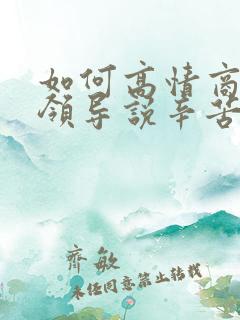 如何高情商
领导说辛苦
齐敏
未经同意禁止转载